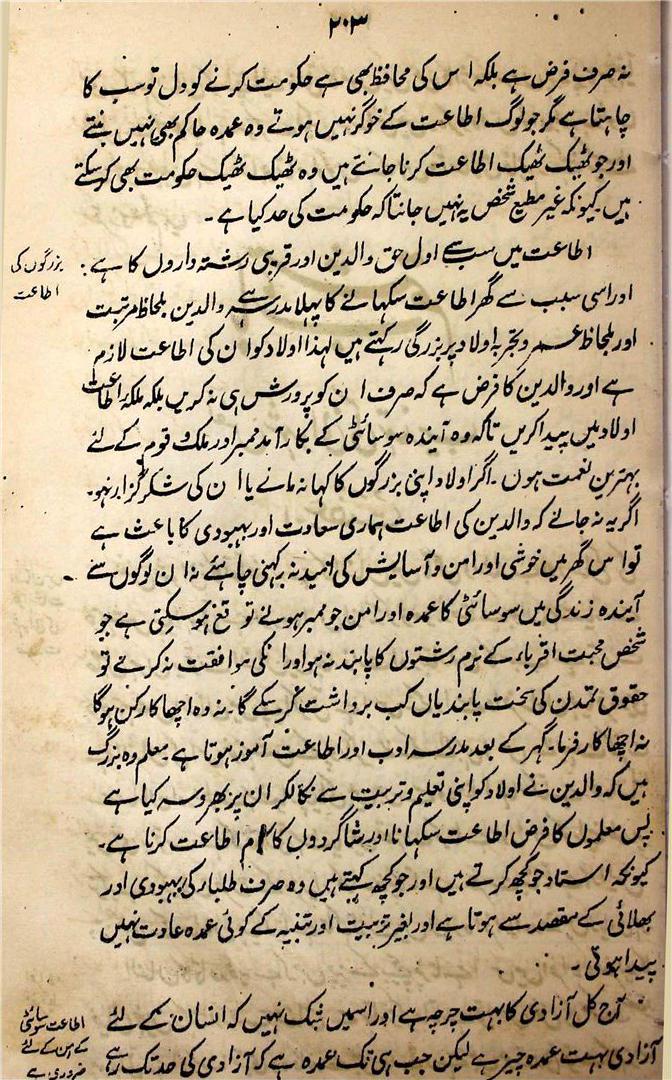 ۲۰۳
نہ صرف فرض ہے بلکہ اس کی محافظ بھی ہے حکومت کرنے کو دل تو سب کا
چاہتا ہے مگر جو لوگ اطاعت کے خوگر نہیں ہوتے وہ عمدہ حاکم بھی نہیں بنتے
اور جو ٹھیک ٹھیک اطاعت کرنا جانتے ہیں وہ ٹھیک ٹھیک حکومت بھی کر سکتے
ہیں کیونکہ غیر مطیع شخص یہ نہیں جانتا کہ حکومت کی حد کیا ہے ۔
بزرگوں کی
اطاعت
اطاعت میں سب سے اول حق والدین اور قریبی رشتہ داروں کا ہے ۔
اور اسی سبب سے گھر اطاعت سکھانے کا پہلا مدرسہ ہے والدین بلحاظ مرتبت
اور بلحاظ عمر و تجربہ اولاد پر بزرگی رکھتے ہیں لہذا اولاد کو ان کی اطاعت لازم
ہے اور والدین کا فرض ہے کہ صرف ان کو پرورش ہی نہ کریں بلکہ ملکۂ اطاعت
اولاد میں پیدا کریں تاکہ وہ آیندہ سوسائٹی کے بکار آمد ممبر اور ملک و قوم کے لئے
بہترین نعمت ہوں ۔ اگر اولاد اپنی بزرگوں کا کہا نہ مانے یا ان کی شکر گزار نہو۔
اگر یہ نہ جانے کہ والدین کی اطاعت ہماری سعادت اور بہبودی کا باعث ہے
تو اس گھر میں خوشی اور امن و آسایش کی امید نہ رکھنی چاہئے نہ ان لوگوں سے
آیندہ زندگی میں سوسائٹی کا عمدہ اور امن جو ممبر ہونے توقع ہو سکتی ہے جو
شخص محبت اقرباء کے نرم رشتوں کا پابند نہ ہو اور انکی موافقت نہ کرے تو
حقوق تمدن کی سخت پابندیاں کب برداشت کر سکے گا۔ نہ وہ اچھا کارکن ہوگا
نہ اچھا کارفرما۔ گہر کے بعد مدرسہ ادب اور اطاعت آموز ہوتا ہے ۔ معلم وہ بزرگ
ہیں کہ والدین نے اولاد کو اپنی تعلیم و تربیت سے نکالکر ان پر بھروسہ کیا ہے
پس معلموں کا فرض اطاعت سکھانا اور شاگردوں کا کام اطاعت کرنا ہے ۔
کیونکہ استاد جو کچھ کرتے ہیں اور جو کچھ کہتے ہیں وہ صرف طلبار کی بہبودی اور
بھلائی کے مقصد سے ہوتا ہے اور بغیر تربیت اور تنبیہ کے کوئی عمدہ عادت نہیں
پیدا ہوتی ۔
اطاعت سوسائٹی
کے امن کے لئے
ضروری ہے
آج کل آزادی کا بہت چرچہ ہے اور اسمیں شک نہیں کہ انسان کے لئے
آزادی بہت عمدہ چیز ہے لیکن جب ہی تک عمدہ ہے کہ آزادی کی حد تک رہے